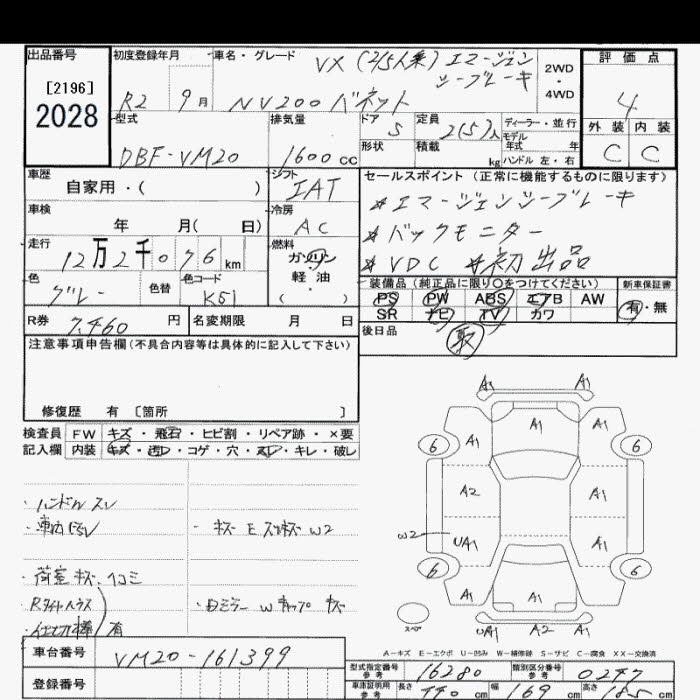 出品番号 初度登録年月 車名・グレード VX (2/5人乗) エマージェン シーブレーキ 2WD ・ 4WD 評価点
[2196]
2028
R2 9月 NV200 バネット 4
型式 排気量 ドア 5 定員 2(5)人 ディーラー・並行 外装 内装
モデル年式 年
DBF-VM20 1600cc 形状 積載 kg ハンドル 左・右 C C
車歴 シフト セールスポイント (正常に機能するものに限ります)
自家用・( ) IAT *エマージェンシーブレーキ
車検 冷房 *バックモニター
年 月( 日) AC *VDC *初出品
走行 燃料
12万2千076km ガソリン
軽・油
( )
色 色替 色コード 装備品 (純正品に限り○をつけてください) 新車保証書
グレー K51 PS PW ABS エアB AW 有・無
R券 7,460円 名変期限 月 日 SR ナビ TV カワ
注意事項申告欄 (不具合内容等は具体的に記入して下さい) 後日品 取
修復歴 有 [箇所 ]
検査員 FW キズ・飛石・ヒビ割・リペア跡・×要
記入欄 内装 キズ・汚レ・コゲ・穴・スレ・キレ・破レ
・ハンドル スレ
・車内 汚レ
・荷室 キズ、凹ミ
・Rタイトハウス
・仕切棒 有
・日ミラー W キャップ キズ
A1 A1
A1
6 A1 A1 6
A2 A1
W2 UA1 A1
6 6
A1 A1 A1
スペア UA1 A2 A1
A-キズ E-エクボ U-凹み W-補修跡 S-サビ C-腐食 XX-交換済
車台番号 VM20-161399
型式指定番号 参考 16280 類別区分番号 参考 0247
登録番号
車庫証明用 参考 長さ 440cm 幅 169cm 高さ 185cm